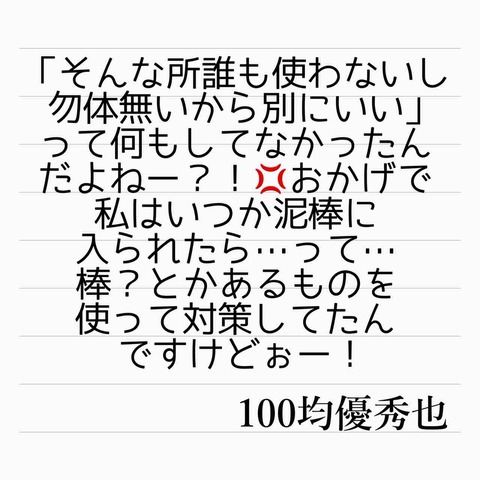 「そんな所誰も使わないし
勿体無いから別にいい」
って何もしてなかったん
だよねー？！💢おかげで
私はいつか泥棒に
入られたら…って…
棒？とかあるものを
使って対策してたん
ですけどぉー！
100均優秀也